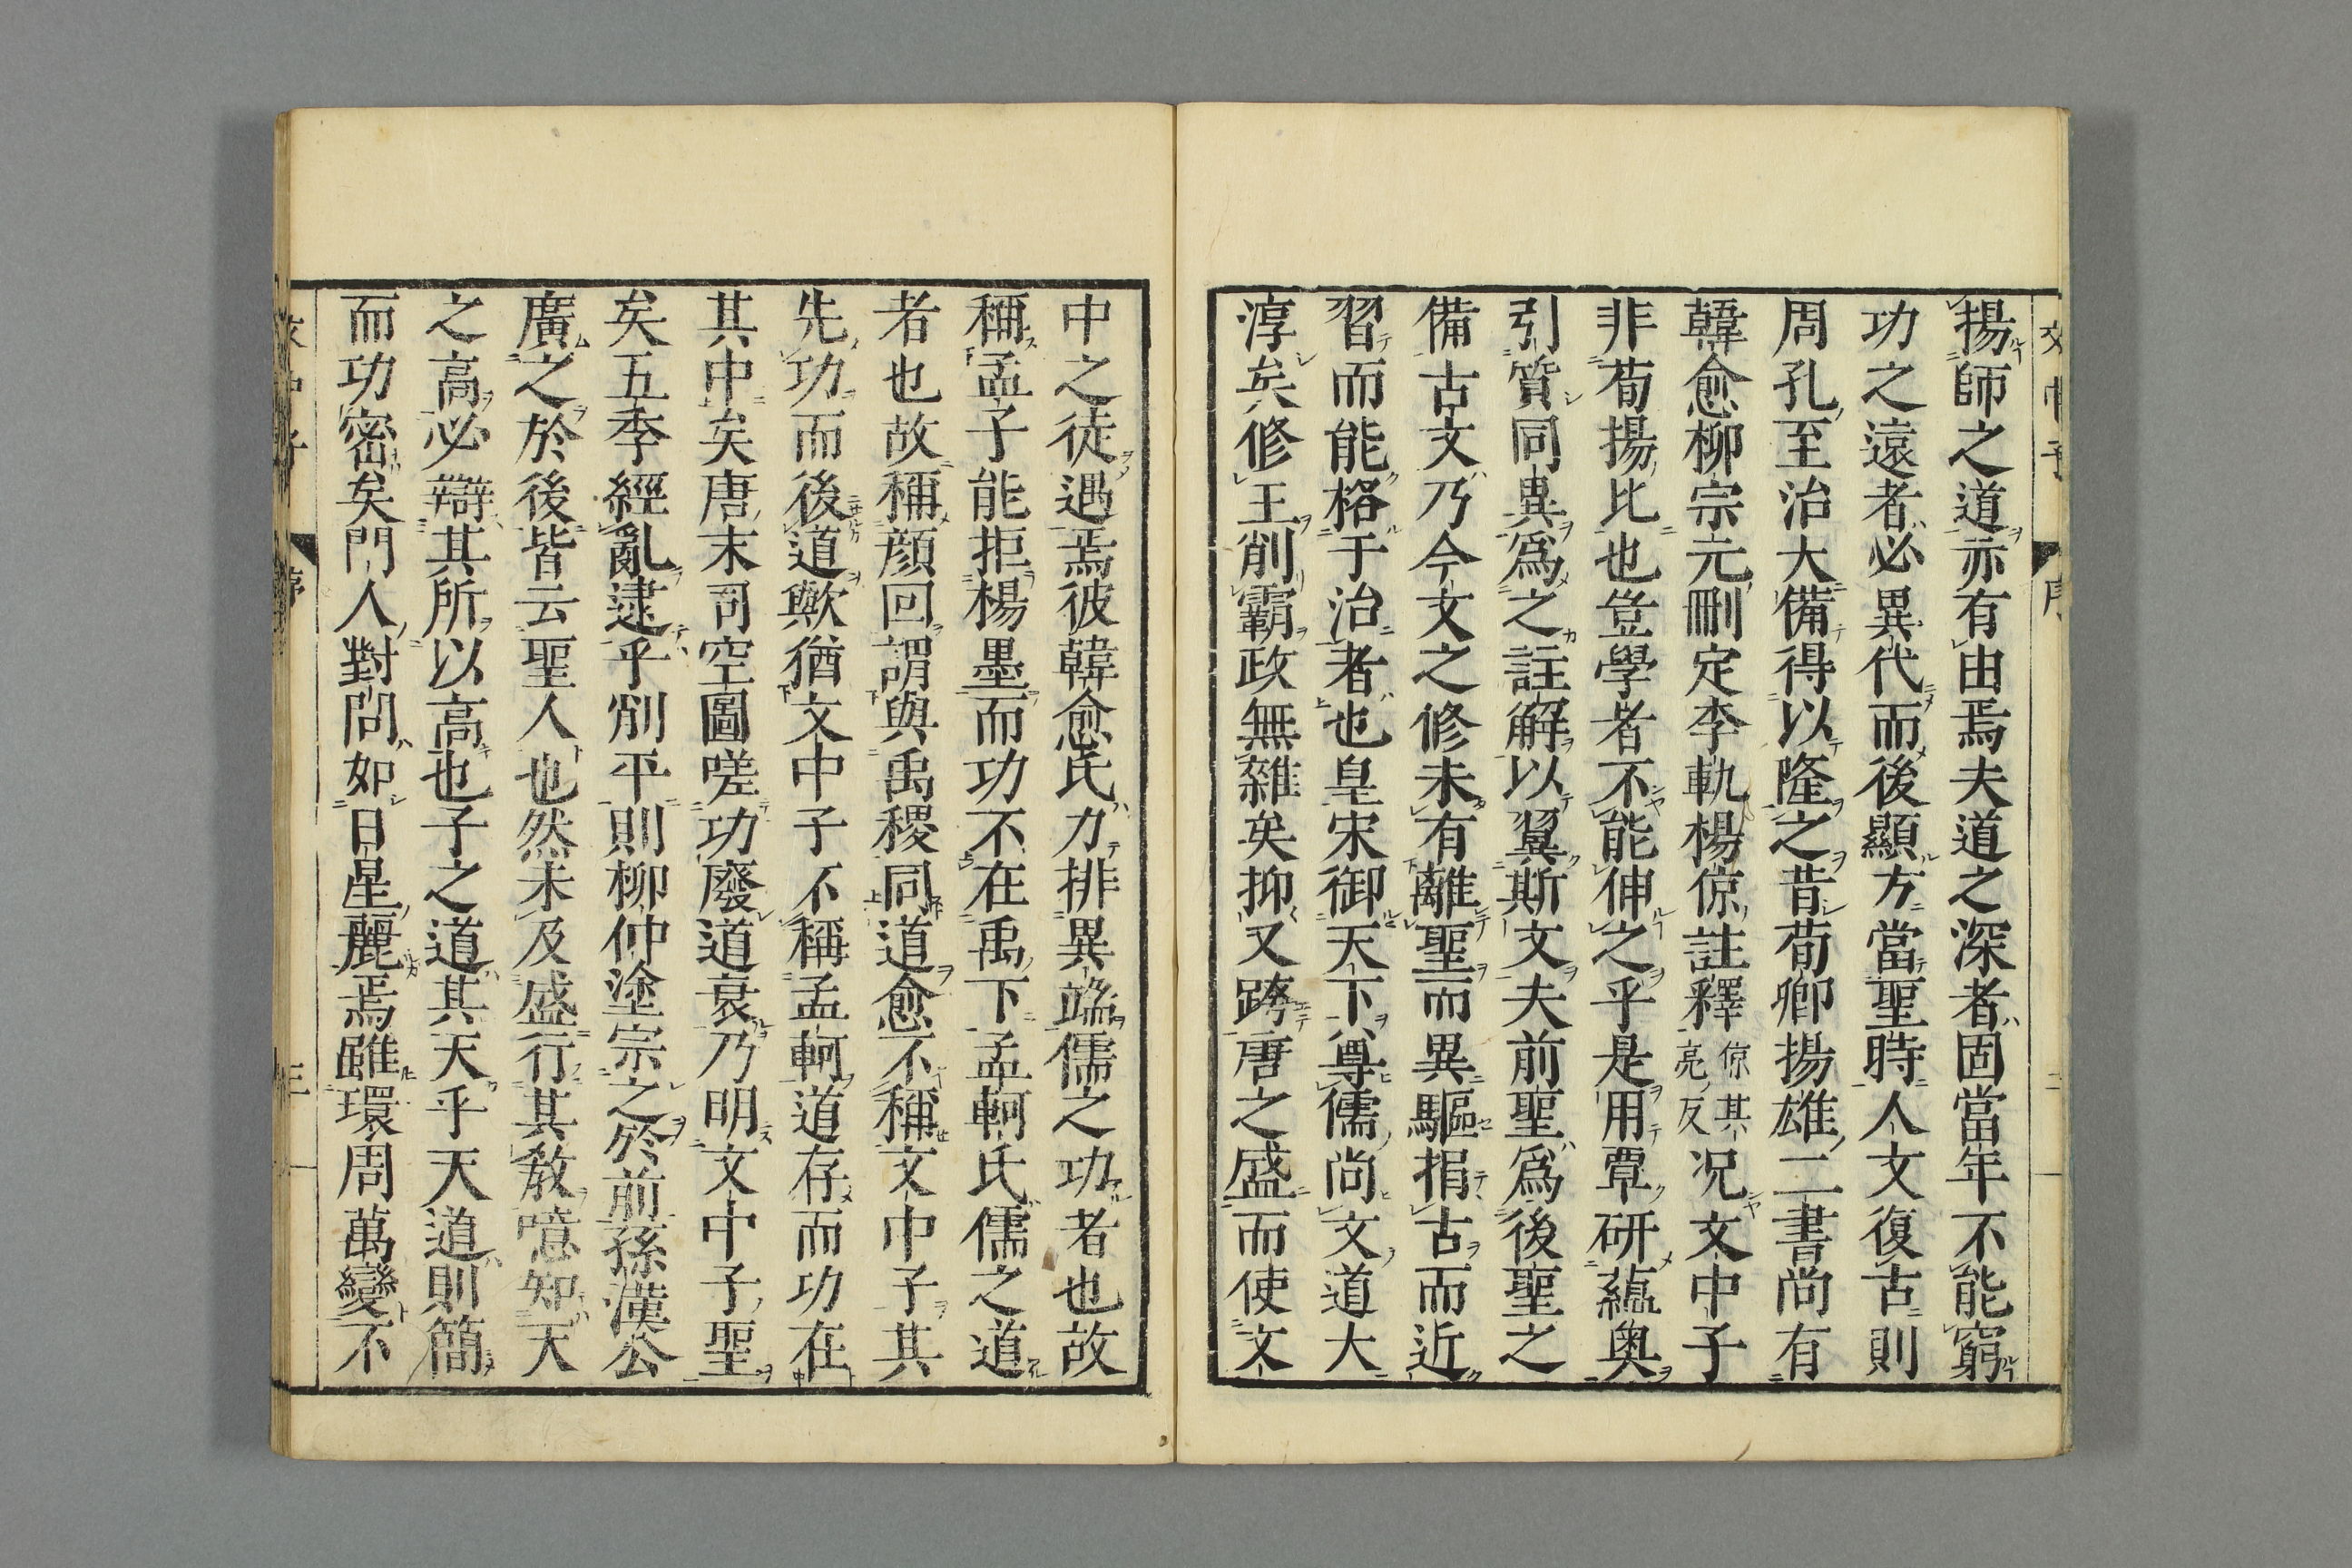 揚師之道亦有由焉夫道之深者固當年不能窮
功之遠者必異代而後顯方當聖時人文復古則
周孔至治大備得以隆之昔荀卿揚雄二書尚有
韓愈柳宗元刪定李軌楊倞註釋倞其亮反況文中子
非荀揚比也豈學者不能伸之乎是用覃研蘊奥
引質同異爲之註解以翼斯文夫前聖爲後聖之
備古文乃今文之修未有離聖而異驅捐古而近
習而能格于治者也皇宋御天下尊儒尚文道大
淳矣修王削霸政無雜矣抑又跨唐之盛而使文
中之徒遇焉彼韓愈氏力排異端儒之功者也故
稱孟子能拒楊墨而功不在禹下孟軻氏儒之道
者也故稱顔回謂與禹稷同道愈不稱文中子其
先功而後道歟猶文中子不稱孟軻道存而功在
其中矣唐末司空圖嗟功廢道衰乃明文中子聖
矣五季經亂逮乎削平則柳仲塗宗之於前孫漢公
廣之於後皆云聖人也然未及盛行其教噫知天
之高必辯其所以高也子之道其天乎天道則簡
而功密矣門人對問如日星麗焉雖環周萬變不